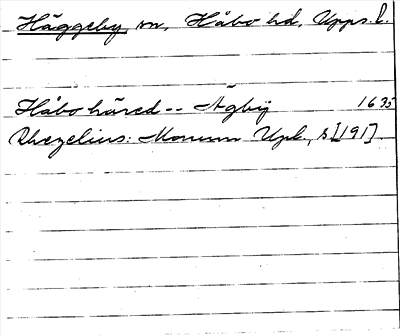 Häggeby sn, Håbo hd, Upps. l.
Håbo härad -- Ägbÿ 1635
Rhezelius: Monum Upl., s [191]